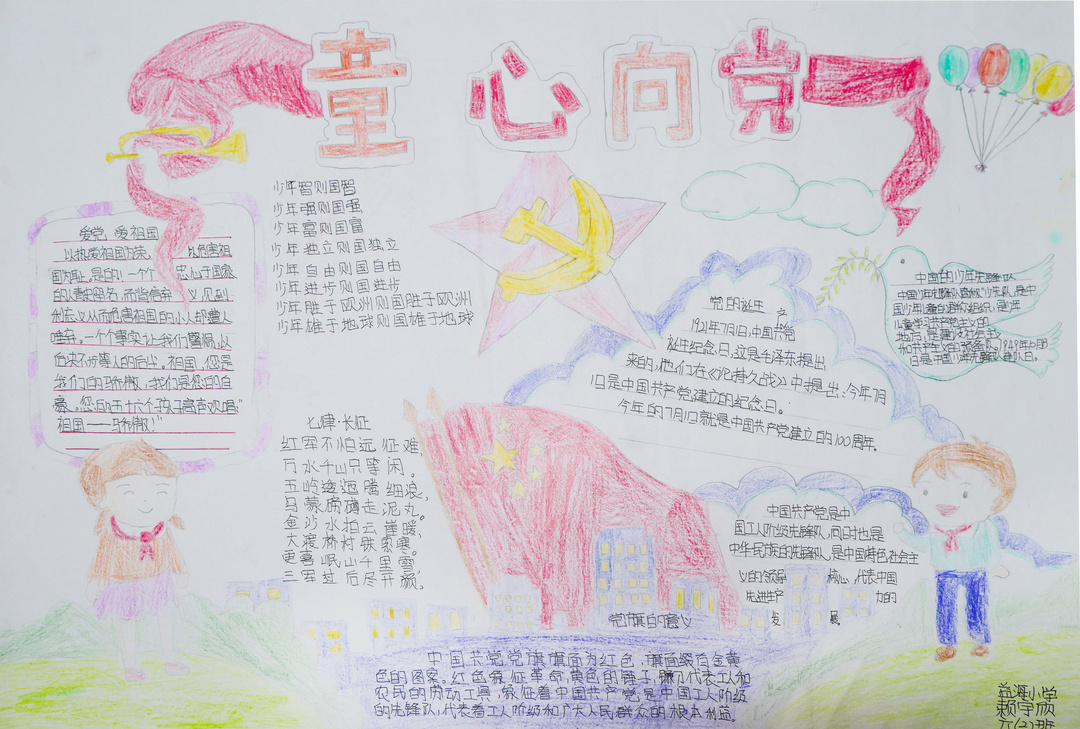 童心向党
爱党 爱祖国
以热爱祖国为荣, 以危害祖
国为耻,是自的一个个 忠心于国家
的人青史留名,而背信弃 义,见利
忘义从而危害祖国的小人却遭人
唾弃。一个个事实让我们警惕,以
祖国,您是
我们的骄傲,我们是您的自
豪。您的五十六个孩子高声欢唱"
祖国——骄傲!"
少年智则国智
少年强则国强
少年富则国富
少年独立则国独立
少年自由则国自由
少年进步则国进步
少年胜于欧洲则国胜于欧洲
少年雄于地球则国雄于地球
七律·长征
红军不怕远征难,
万水千山只等闲。
五岭逶迤腾细浪,
乌蒙磅礴走泥丸。
金沙水拍云崖暖,
大渡桥 铁索寒。
更喜岷山千里雪,
三军过后尽开颜。
党的诞生
1921年7月1日,中国共党
诞生纪念日,这是毛泽东提出
来的,他们在《论持久战》中提出:今年7月
1日是中国共产党建立的纪念日。
今年的7月1日就是中国共产党建立的100周年。
中国的少年先锋队
中国少年先锋队 "少先队,是中
国少年儿童的群众组织,是少年
儿童学习共产主义的
地方,是建设社会主义
和共产主义的预备队。1949年10月13
日是中国少年先锋队建队日。
中国共产党是中
国工人阶级先锋队,同时也是
中华民族的先锋队,是中国特色社会主
义的领导 核心,代表中国
先进生产 力的
发 展
党旗的意义
中国共党党旗旗面为红色,旗面缀有金黄
色的图案。红色象征革命,黄色的锤子、镰刀代表工人和
农民的劳动工具,象征着中国共产党,是中国工人阶级
的先锋队,代表着工人阶级和广大人民群众的根本利益。
小学
赖宇欣
六(2)班